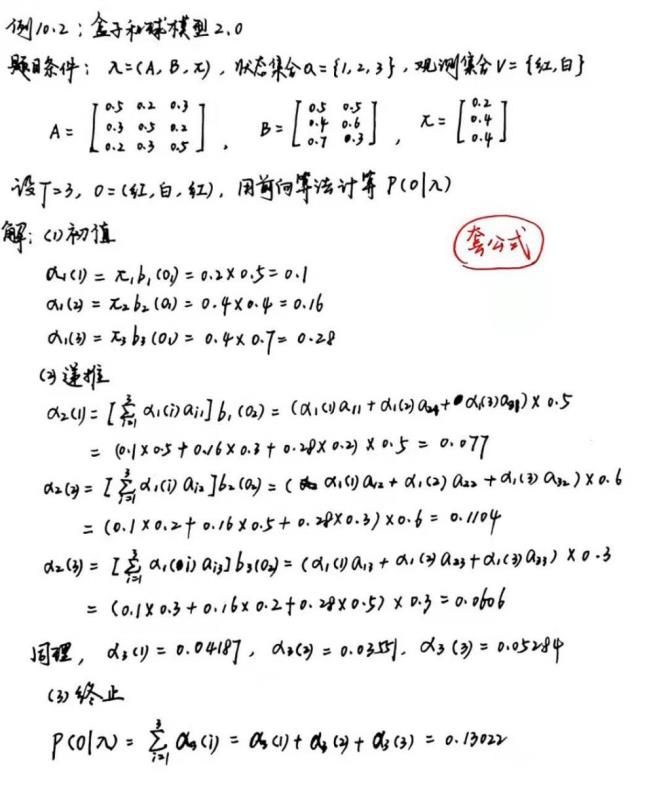 例10.2：盒子和球模型2.0
题目条件：λ=(A, B, π)，状态集合Q={1,2,3}，观测集合V={红,白}
A = [0.5 0.2 0.3; 0.3 0.5 0.2; 0.2 0.3 0.5]，B = [0.5 0.5; 0.4 0.6; 0.7 0.3]，π = [0.2; 0.4; 0.4]
设T=3, O=(红,白,红)，用前向算法计算 P(O|λ)
解：(1)初值
套公式
α₁(1) = π₁b₁(o₁) = 0.2×0.5 = 0.1
α₁(2) = π₂b₂(o₁) = 0.4×0.4 = 0.16
α₁(3) = π₃b₃(o₁) = 0.4×0.7 = 0.28
(2)递推
α₂(1) = [∑³ᵢ₌₁ α₁(i)aᵢ₁]b₁(o₂) = (α₁(1)a₁₁ + α₁(2)a₂₁ + α₁(3)a₃₁)×0.5
= (0.1×0.5 + 0.16×0.3 + 0.28×0.2)×0.5 = 0.077
α₂(2) = [∑³ᵢ₌₁ α₁(i)aᵢ₂]b₂(o₂) = (α₁(1)a₁₂ + α₁(2)a₂₂ + α₁(3)a₃₂)×0.6
= (0.1×0.2 + 0.16×0.5 + 0.28×0.3)×0.6 = 0.1104
α₂(3) = [∑³ᵢ₌₁ α₁(i)aᵢ₃]b₃(o₂) = (α₁(1)a₁₃ + α₁(2)a₂₃ + α₁(3)a₃₃)×0.3
= (0.1×0.3 + 0.16×0.2 + 0.28×0.5)×0.3 = 0.0606
同理，α₃(1) = 0.04187，α₃(2) = 0.03551，α₃(3) = 0.05284
(3)终止
P(O|λ) = ∑³ᵢ₌₁ α₃(i) = α₃(1) + α₃(2) + α₃(3) = 0.13022